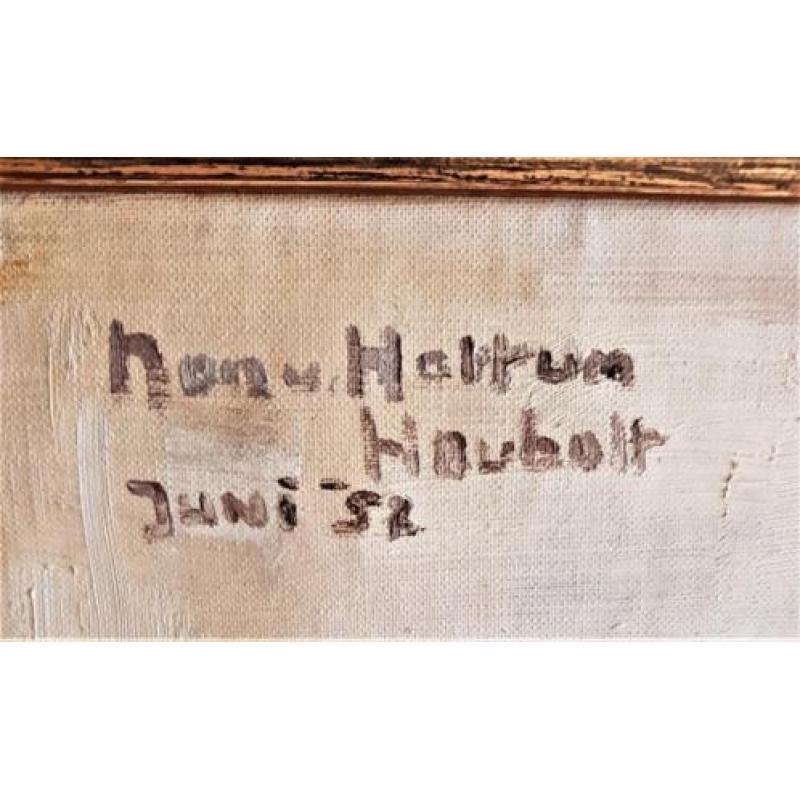 nan v. Hattum
Houbolt
Juni '52